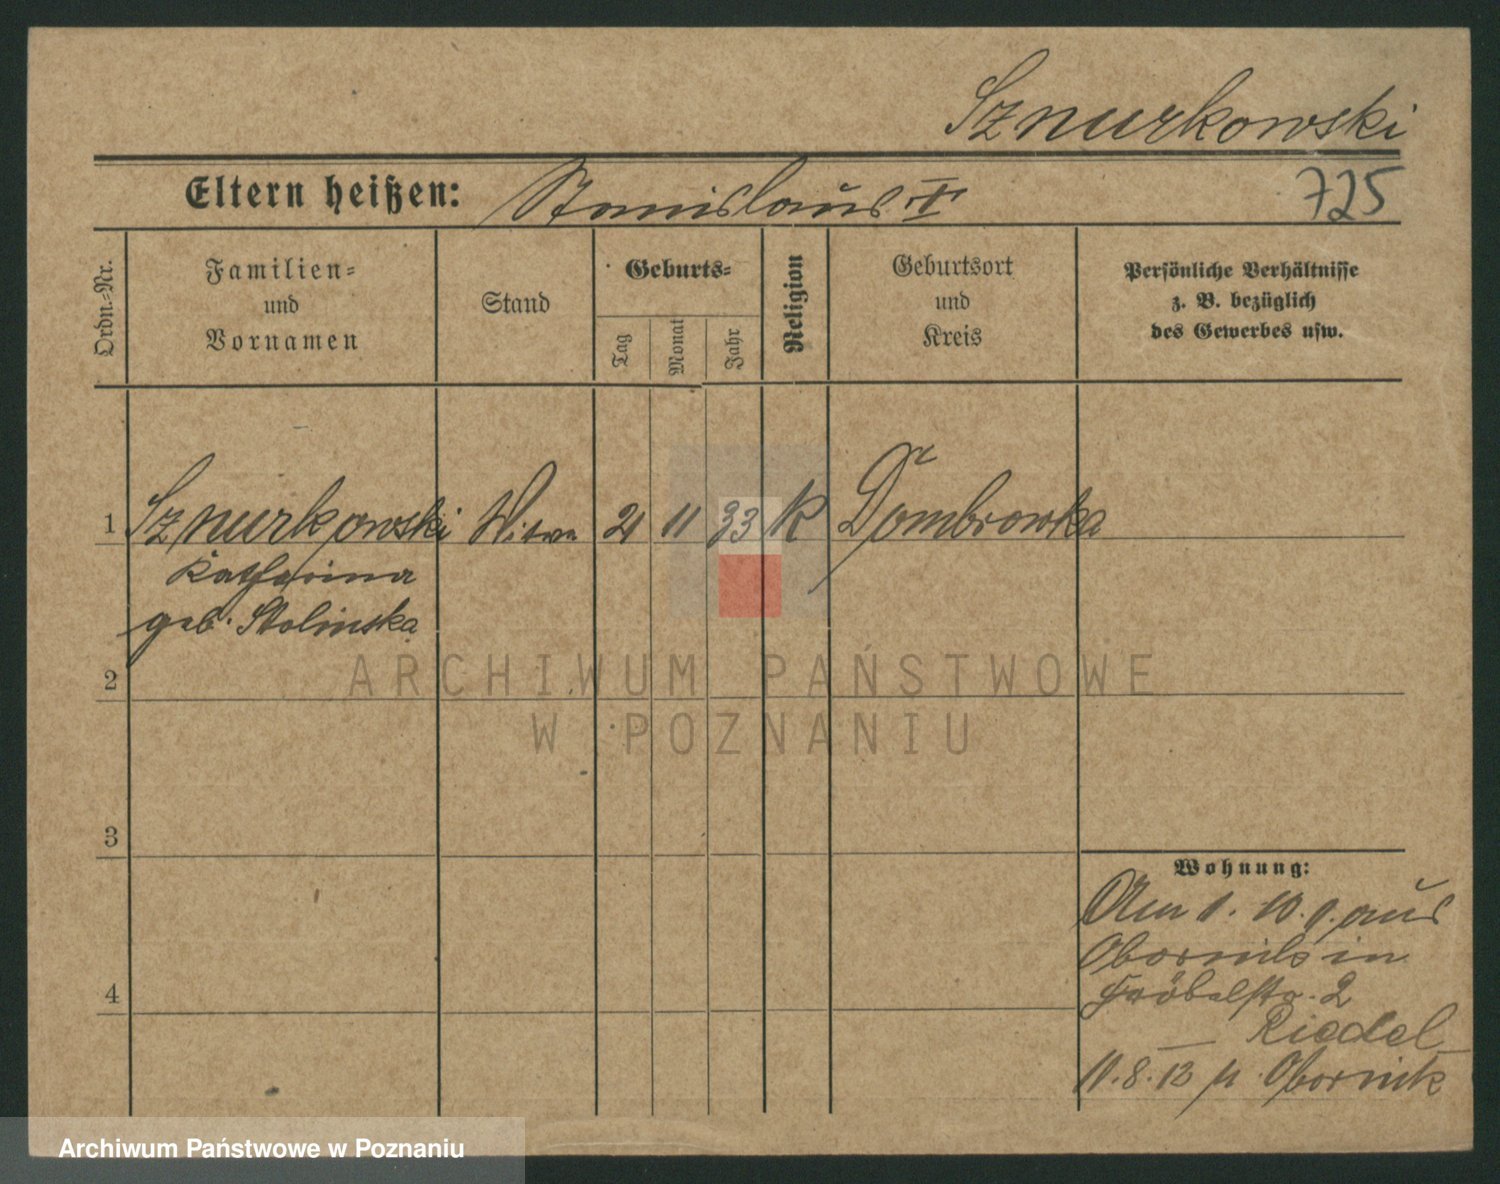 Sznurkowski
Eltern heißen: Stanislaus I
725
Ordn.=Nr.
Familien=
und
Vornamen
Stand
Geburts=
Tag
Monat
Jahr
Religion
Geburtsort
und
Kreis
Persönliche Verhältnisse
z. B. bezüglich
des Gewerbes usw.
1 Sznurkowski Witwe 21 11 33 K Dombrowka
Katharina
geb. Stolinska
2
ARCHIWUM PAŃSTWOWE
W POZNANIU
3
Wohnung:
Am 1. 10. 9. aus
Obornik in
4 Fröbelstr. 2
Riedel
11. 8. 12 n Obornik
Archiwum Państwowe w Poznaniu